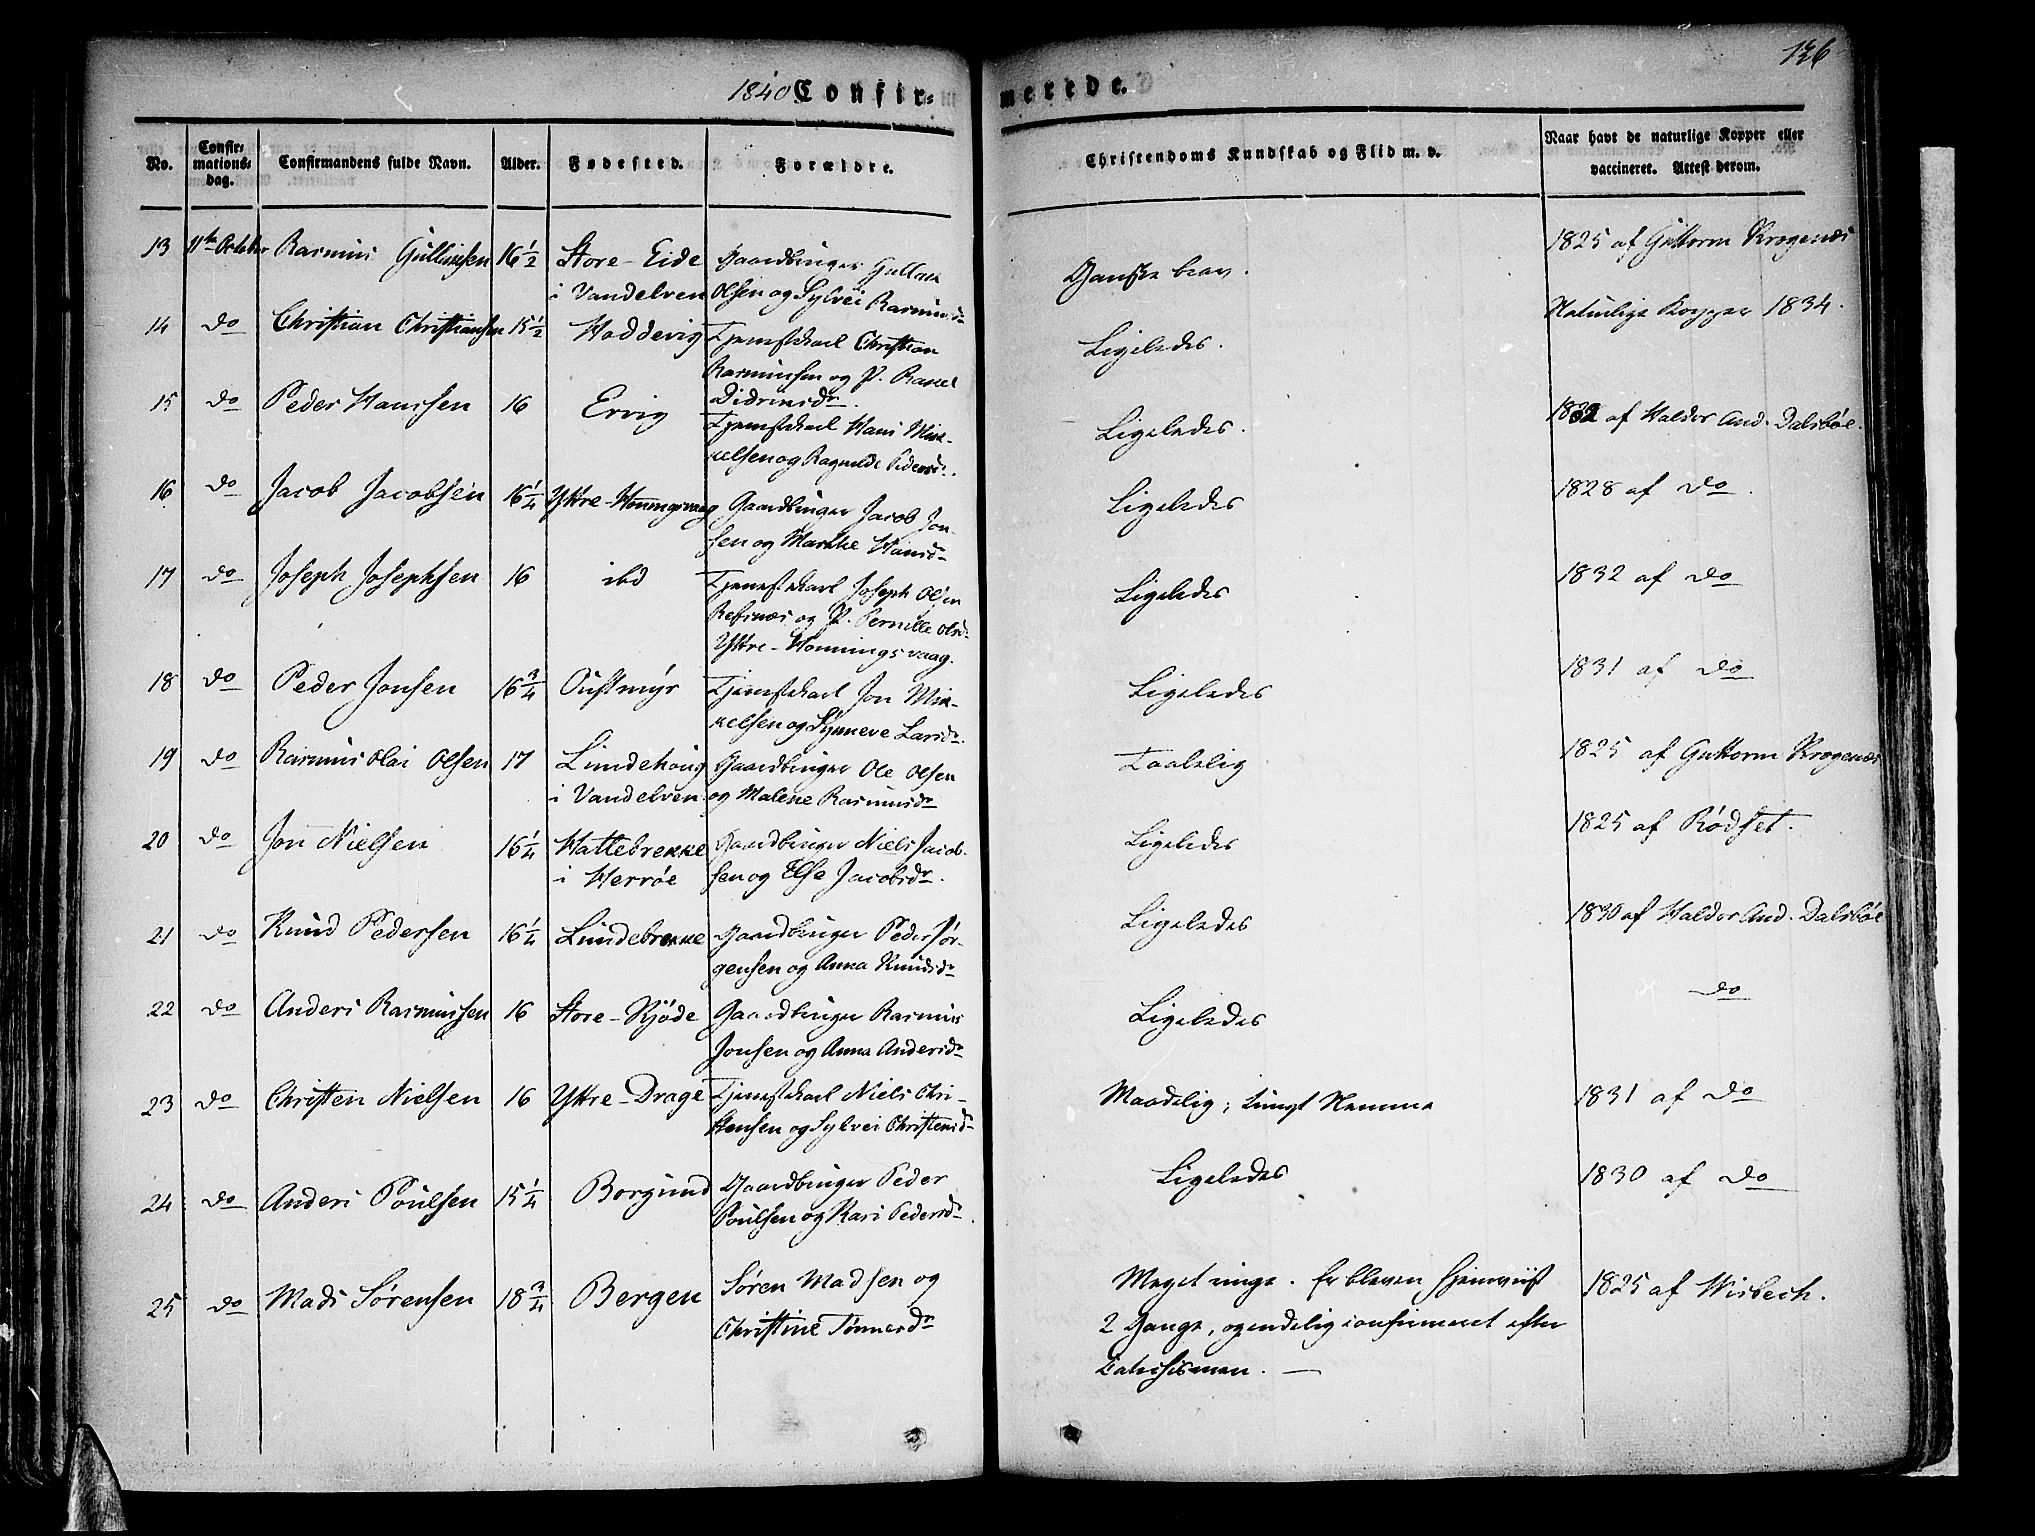 126
1840 Confir-
merede.
No.
Confir-
mations-
dag.
Confirmandens fulde Navn.
Alder.
Fødested.
Forældre.
Christendoms Kundskab og Flid m. v.
Naar havt de naturlige Kopper eller
vaccineret. Attest derom.
13 11te October Rasmus Gullacsen 16 1/2 Store-Eide Gaardbruger Gullack
i Vandelven Olsen og Sylvei Rasmusdr
Ganske brav.
1825 af Guttorm Krogenæs
14 do Christian Christiansen 15 1/2 Hoddevig Tjenestekarl Christian
Rasmussen og P. Rakel
Didriksdr.
Ligeledes.
Naturlige Kopper 1834.
15 do Peder Hanssen 16 Ervig
Tjenestekarl Hans Mik-
kelsen og Ragnilde Pedersdr.
Ligeledes.
1832 af Haldor And. Dalsbøe.
16 do Jacob Jacobsen 16 1/4 Yttre-Honningsvaag Gaardbruger Jacob Jon-
sen og Marthe Hansdr
Ligeledes
1828 af do.
17 do Joseph Josephsen 16 ibd Tjenestekarl Joseph Olsen
Refsnæs og P. Pernille Olsdr
Yttre-Honningsvaag.
Ligeledes
1832 af do
18 do Peder Jonsen 16 3/4 Oustmyr Tjenestekarl Jon Mik-
kelsen og Synneve Larsdr.
Ligeledes
1831 af do
19 do Rasmus Olai Olsen 17 Lundehoug Gaardbruger Ole Olsen
i Vandelven og Malene Rasmusdr
Taalelig
1825 af Guttorm Krogenæs
20 do Jon Nielsen 16 1/4 Hattebrekke Gaardbruger Niels Jacob-
i Herrøe sen og Else Jacobsdr.
Ligeledes
1825 af Rødset.
21 do Knud Pedersen 16 1/4 Lundebrekke Gaardbruger Peder Jør-
gensen og Anna Knudsdr
Ligeledes
1830 af Haldor And. Dalsbøe
22 do Anders Rasmussen 16 Store-Kjøde Gaardbruger Rasmus
Jonsen og Anna Andersdr
Ligeledes
do
23 do Christen Nielsen 16 Yttre-Drage Tjenestekarl Niels Chri-
stensen og Sylvei Christensdr
Maadelig; tungt Nemme
1831 af do
24 do Anders Poulsen 15 1/4 Borgund Gaardbruger Peder
Poulsen og Kari Pedersdr.
Ligeledes
1830 af do
25 do Mads Sørensen 18 3/4 Bergen Søren Madsen og
Christine Tønnesdr
Meget ringe. Er bleven hjemviist
2 Gange, og endelig confirmeret efter
Catechismen. —
1825 af Wisbech.